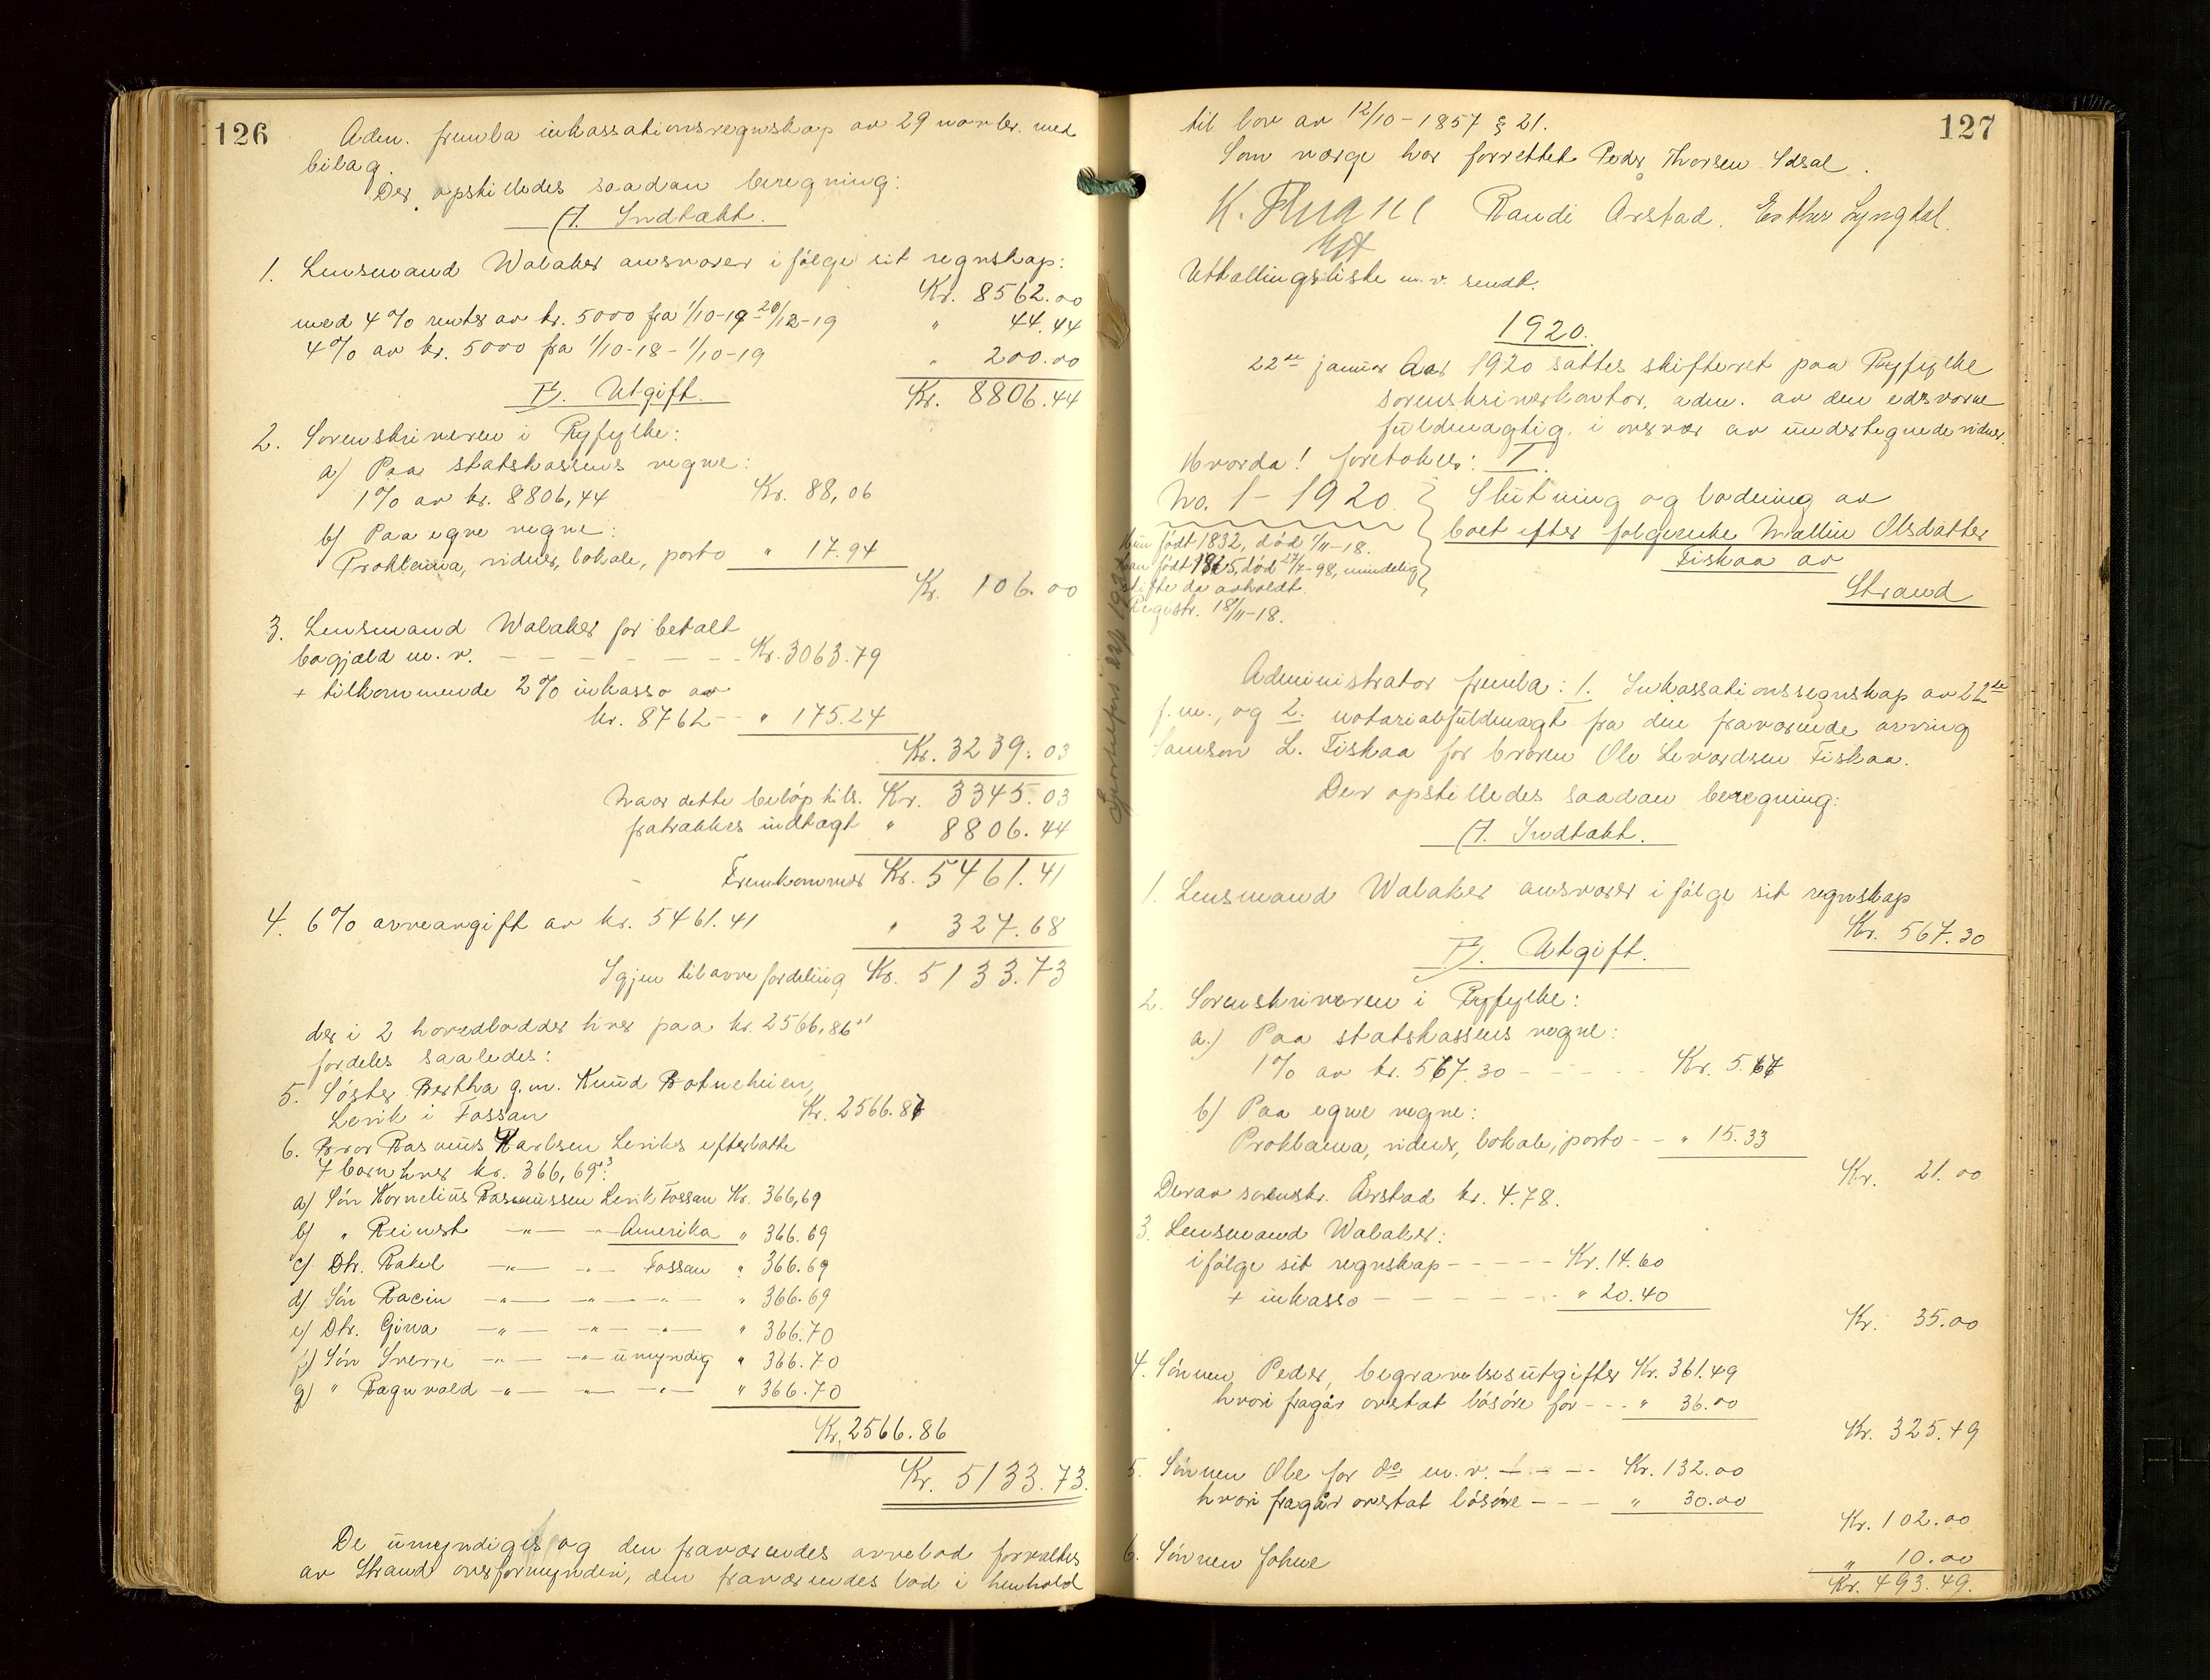 126
Adm. fremla inkassationsregnskap av 29 novbr. med
bilag.
Der opstilledes saadan beregning:
A. Indtækt.
1. Lensmand Walaker ansvarer ifølge sit regnskap:
Kr. 8562.00
med 4% renter av kr. 5000 fra 1/10-19 - 20/12-19 " 44.44
4% av kr. 5000 fra 1/10-18 - 1/10-19 " 200.00
B. Utgift. Kr. 8806.44
2. Sorenskriveren i Ryfylke:
a) Paa statskassens vegne:
1% av kr. 8806,44 Kr. 88,06
b) Paa egne vegne:
Proklama, vidner, lokale, porto " 17.94
Kr. 106.00
3. Lensmand Walaker for betalt
bogjæld m. v. Kr. 3063.79
+ tilkommende 2% inkasso av
kr. 8762 " 175.24
Kr. 3239.03
Naar dette beløp tils. Kr. 3345.03
fratrækkes indtægt " 8806.44
Fremkommer Kr. 5461.41
4. 6% arveavgift av kr. 5461.41 " 327.68
Igjen til arvefordeling Kr. 5133.73
der i 2 hovedlodder hver paa kr. 2566,86
fordeles saaledes:
5. Søster Bertha g. m. Knud Botneheien,
Lerik i Fossan Kr. 2566.87
6. Bror Rasmus Karlsen Leriks efterlatte
7 barn hver kr. 366,69
a) Søn Kornelius Rasmussen Lerik Fossan Kr. 366,69
b) " Reinert -"- -"- Amerika " 366.69
c) Dtr. Rakel -"- -"- Fossan " 366.69
d) Søn Racin -"- -"- -"- " 366.69
e) Dtr. Gina -"- -"- -"- " 366.70
f) Søn Sverre -"- -"- umyndig " 366.70
g) " Ragnvald -"- -"- -"- " 366.70
Kr. 2566.86
Kr. 5133.73.
De umyndiges og den fraværendes arvelod forvaltes
av Strand overformynderi, den fraværendes lod i henhold
127
til lov av 12/10-1857 § 21.
Som værge har forrettet Peder Thorsen Idsal.
Randi Årstad. Esther Lyngdal.
Utkallingsliste m. v. sendt.
1920.
22de januar Aar 1920 sattes skifteret paa Ryfylke
sorenskriverkontor, adm. av den edsvorne
fuldmægtig, i overvær av undertegnede vidner.
Hvorda! foretokes: I.
No. 1 - 1920. Slutning og lodning av
boet efter folgerenke Mallin Olsdatter
Tiskaa av
Strand
Hun født 1832, død 1/11-18.
Han født 1825, død 27/7-98, mindelig
skifte da avholdt.
Registr. 18/11-18.
Administrator fremla: 1. Inkassationsregnskap av 22de
f. m., og 2. notarialfuldmagt fra den fraværende arving
Samson L. Tiskaa for broren Ole Levardsen Tiskaa.
Der opstilledes saadan beregning:
A. Indtækt.
1. Lensmand Walaker ansvarer ifølge sit regnskap
Kr. 567.30
B. Utgift.
2. Sorenskriveren i Ryfylke:
a.) Paa statskassens vegne:
1% av kr. 567.30 Kr. 5.67
b) Paa egne vegne:
Proklama, vidner, lokale, porto " 15.33
Kr. 21.00
Derav sorenskr. Årstad kr. 4.78.
3. Lensmand Walaker:
ifølge sit regnskap Kr. 14.60
+ inkasso " 20.40
Kr. 35.00
4. Sønnen Peder, begravelsesutgifter Kr. 361.49
hvori fragår overtat løsøre for " 36.00
Kr. 325.49
5. Sønnen Ole for do m. v. Kr. 132.00
hvori fragår overtat løsøre " 30.00
Kr. 102.00
6. Sønnen Johne " 10.00
Kr. 493.49.